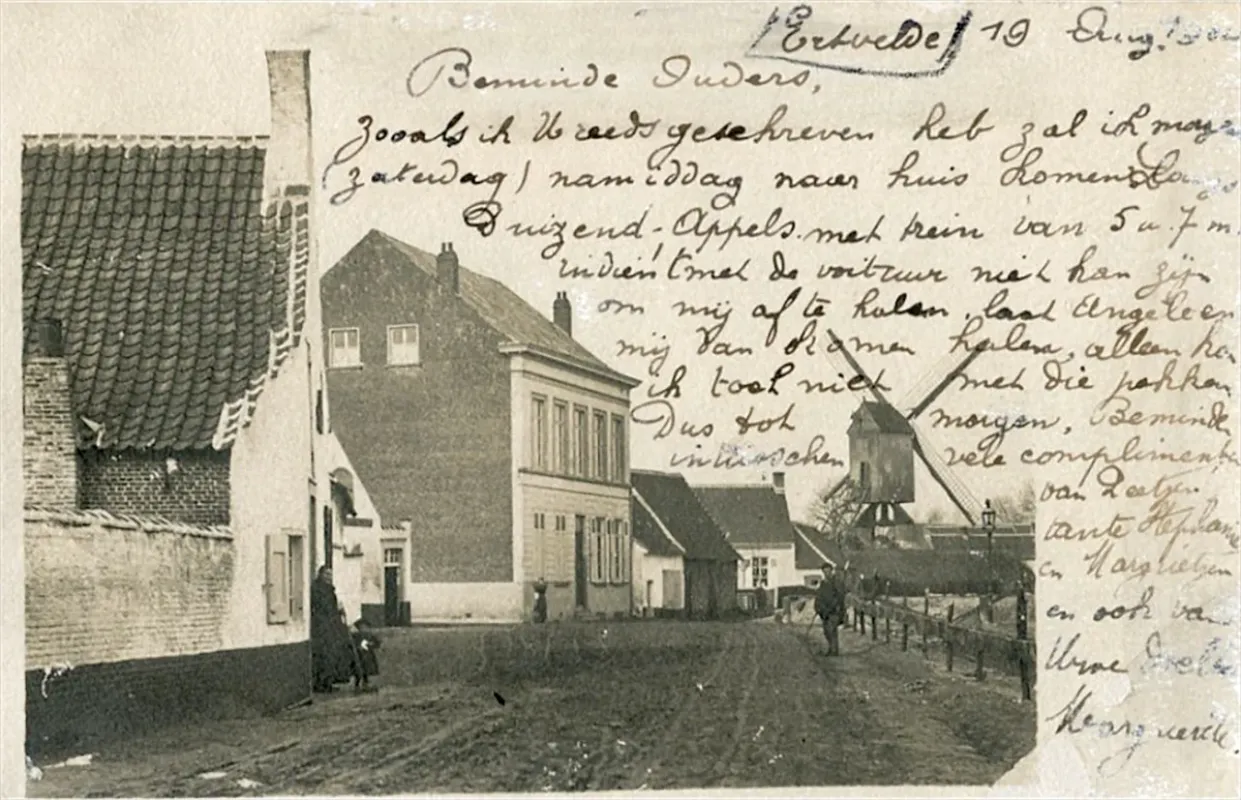 Ertvelde 19 Aug.
Beminde Ouders,
Zooals ik U reeds geschreven heb zal ik
(zaterdag) namiddag naar huis komen langs
Duizend-Appels. met trein van 5 u. 7 m.
indien 't met de voituur niet kan zijn
om mij af te halen, laat Angele en
mij dan komen halen, alleen kan
ik toch niet met die pakken
Dus tot morgen, Beminde
intusschen vele complimenten
van
tante Stephanie
en Margrietjen
en ook van
Uwe
Marguerite.